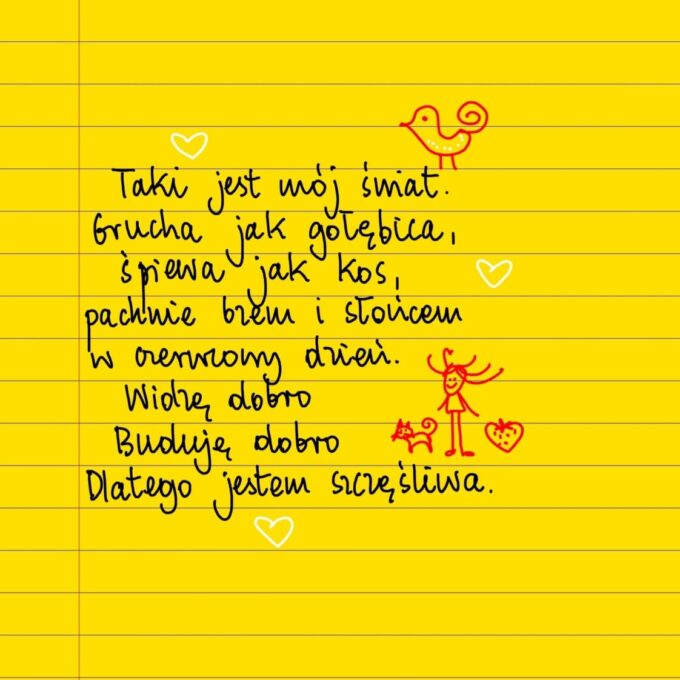 Taki jest mój świat.
Grucha jak gołębica,
śpiewa jak kos,
pachnie bzem i słońcem
w czerwcowy dzień.
Widzę dobro
Buduję dobro
Dlatego jestem szczęśliwa.